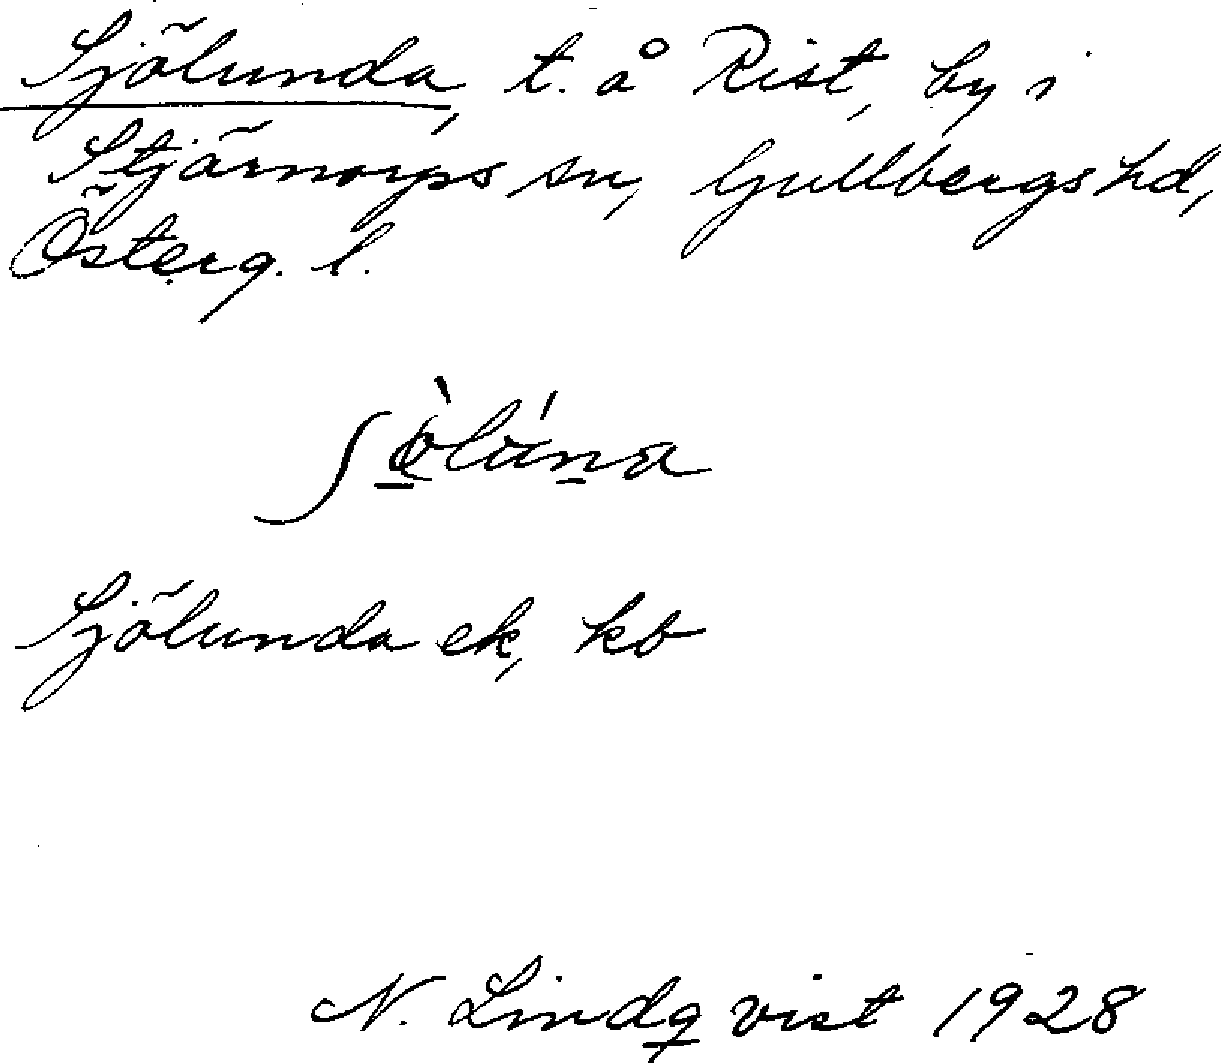 Sjölunda, t. å Rist, by i
Stjärnorps sn, Gullbergs hd,
Österg. l.
Sjölunda ek, kb
N. Lindqvist 1928